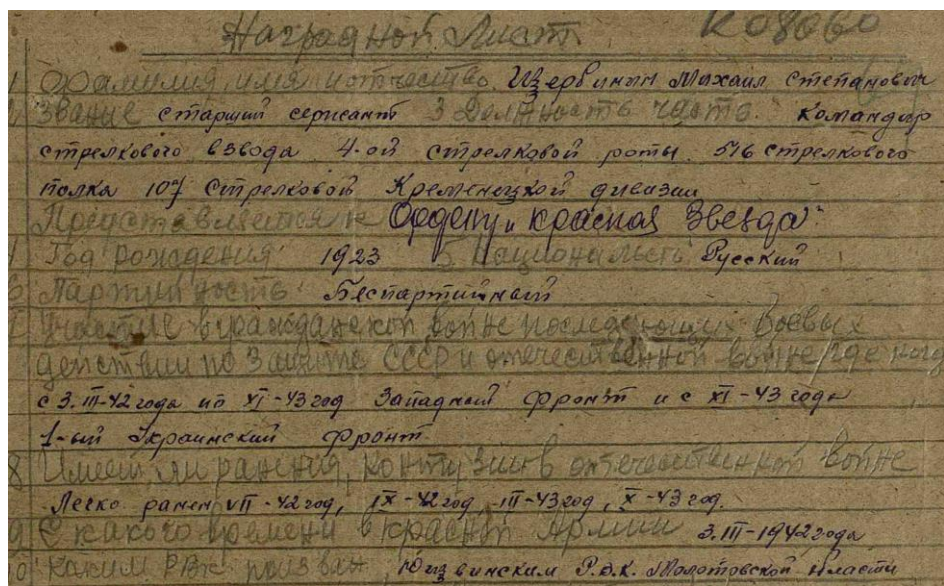 Наградной Лист
1 Фамилия, имя и отчество Щербинин Михаил Степанович
2 Звание старший сержант 3 Должность часть. Командир
стрелкового взвода 4-ой стрелковой роты 516 стрелкового
полка 107 Стрелковой Кременецкой дивизии
Представляется к Ордену „Красная Звезда“
4 Год рождения 1923 5 Национальность Русский
6 Партийность Беспартийный
7 Участие в гражданской войне последующих боевых
действии по защите СССР и отечественной войне/где когд
с 3.III-42 года по XI-43 год Западный фронт и с XI-43 года
1-ый Украинский фронт.
8 Имеет ли ранения, контузии в отечественной войне
Легко ранен VII-42 год, IX-42 год, III-43 год, X-43 год.
9 С какого времени в красной Армии 3.III-1942 года
10 Каким РВК призван, Р.В.К. Молотовской области